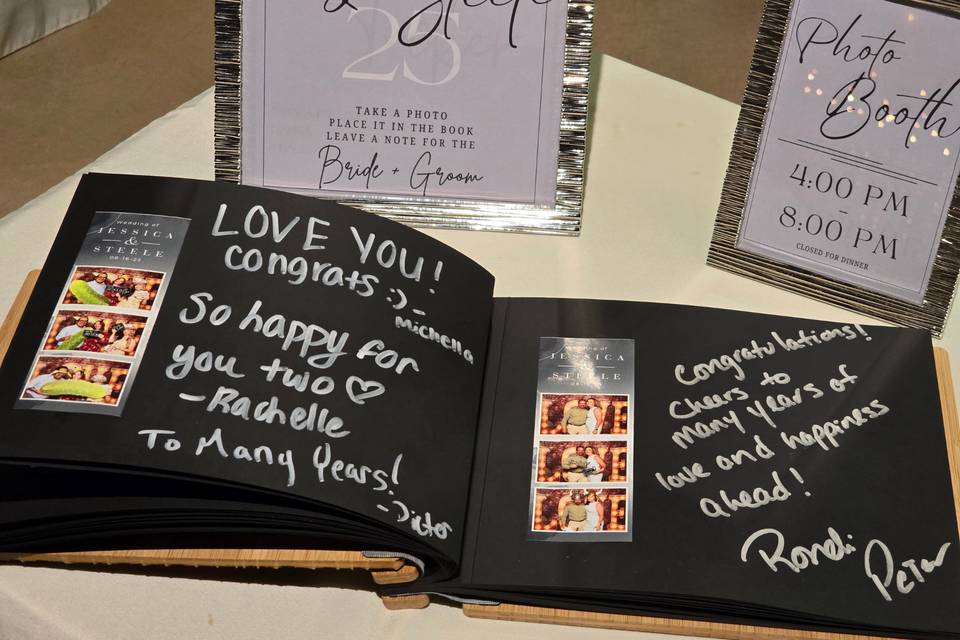 & Steele
25
TAKE A PHOTO
PLACE IT IN THE BOOK
LEAVE A NOTE FOR THE
Bride + Groom
Photo
Booth
4:00 PM
-
8:00 PM
CLOSED FOR DINNER
wedding of
JESSICA
&
STEELE
LOVE YOU!
congrats :)
- Michella
So happy for
you two ♡
- Rachelle
To Many Years!
wedding of
JESSICA
&
STEELE
Congratulations!
Cheers to
many years of
love and happiness
ahead!
Rondi
Peter